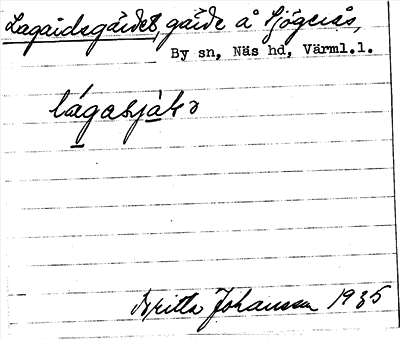 Lagaidsgärdet, gärde å Sjögerås,
By sn, Näs hd, Värml.l.
lágasjätə
Britta Johansson 1935